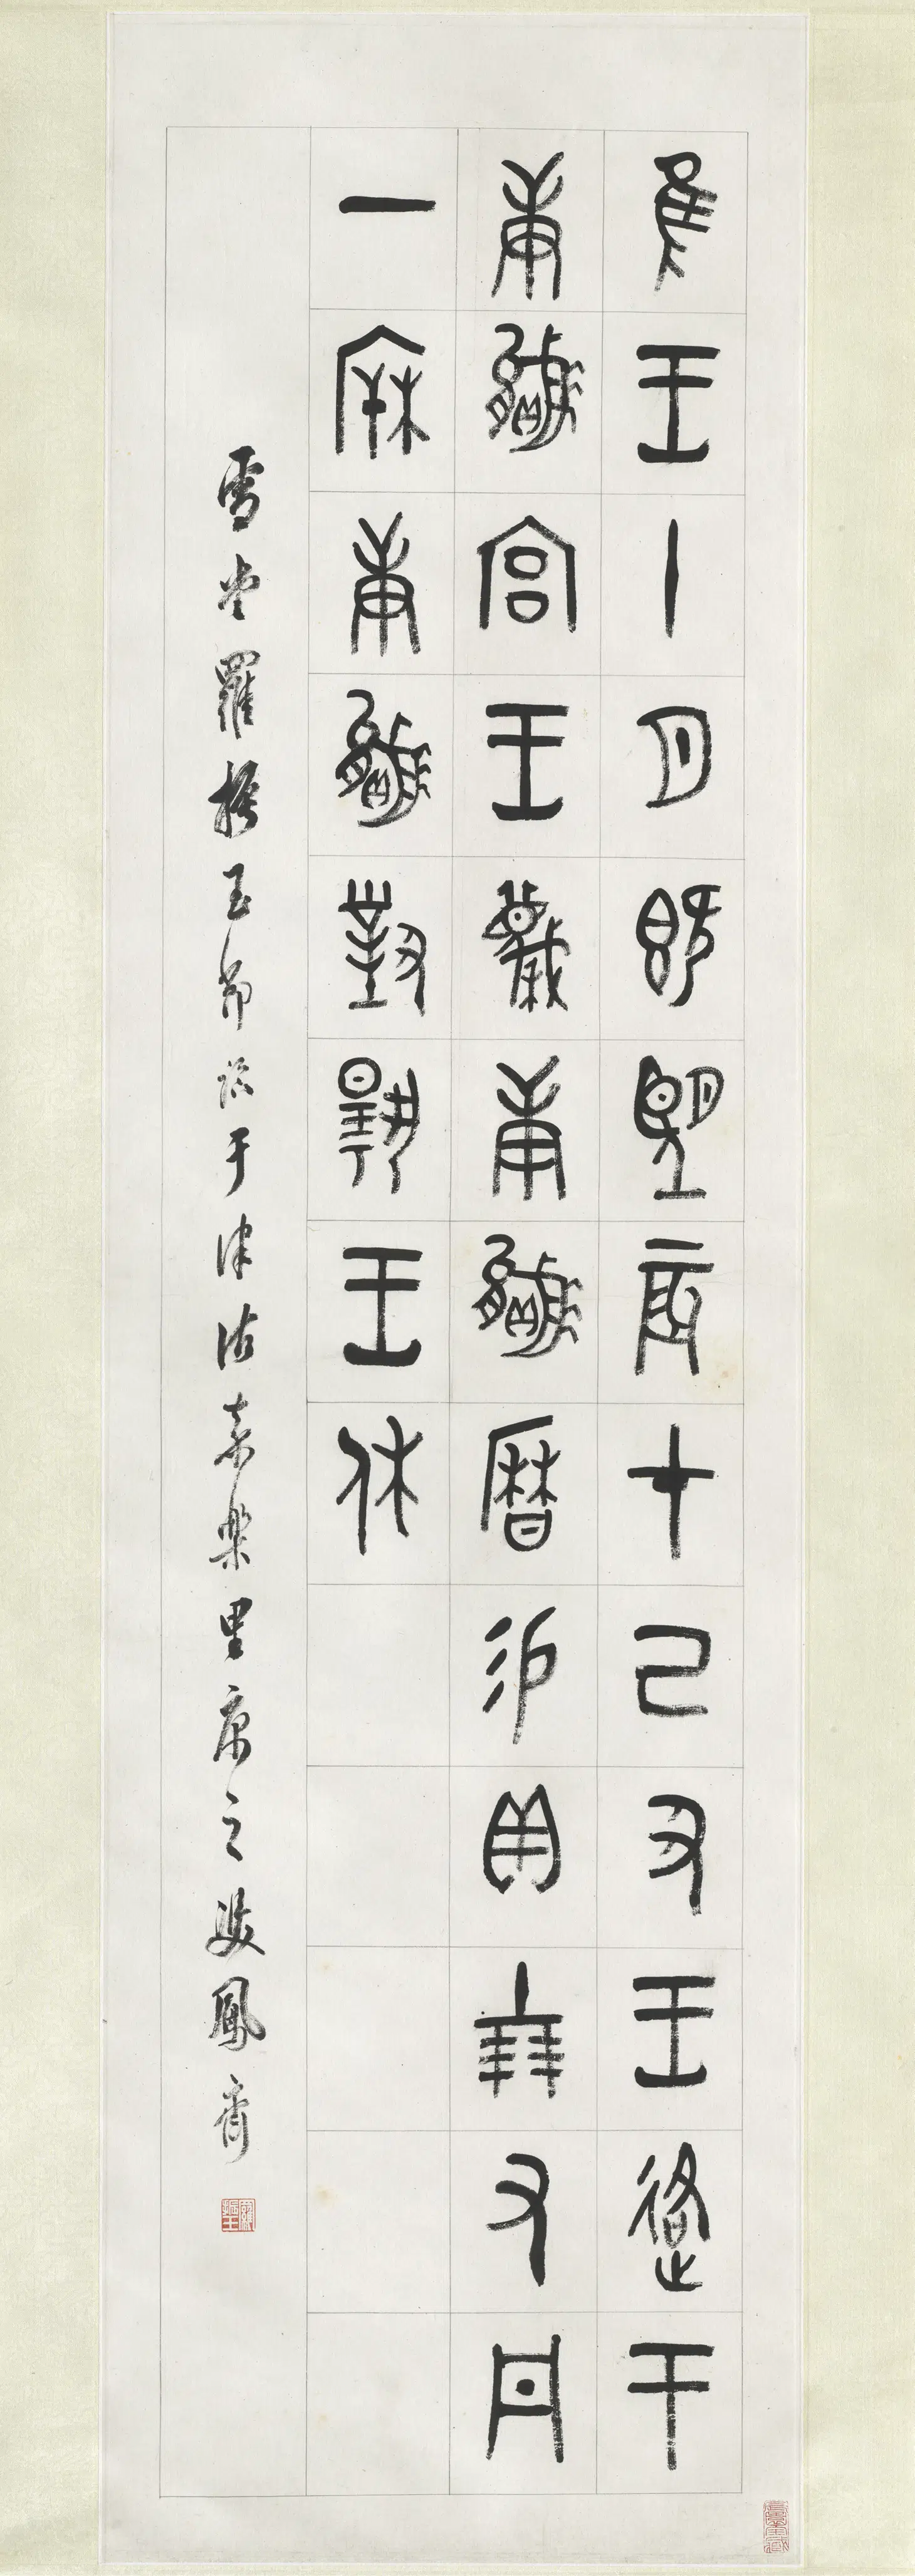 隹王十月既望辰才己丑王逄于
庚嬴宮王蔑庚嬴曆易貝十朋又丹
一㭪庚嬴對揚王休
雪堂羅振玉節臨于津沽嘉樂里寓之雙鳳齋
羅振玉